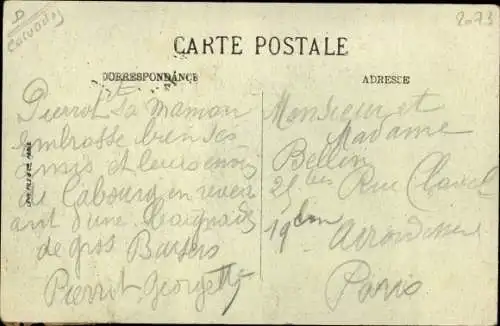 D
Calvados
2073
CARTE POSTALE
CORRESPONDANCE
ADRESSE
Pierrot et Sa Maman
embrasse bien ses
amis et leurs envoi
de Cabourg en reven
ant d'une Baignade
de gros Baisers
Pierrot Georgette
Monsieur et
Madame
Bellon
25 bis Rue Clavel
19em
Arrondisse
Paris